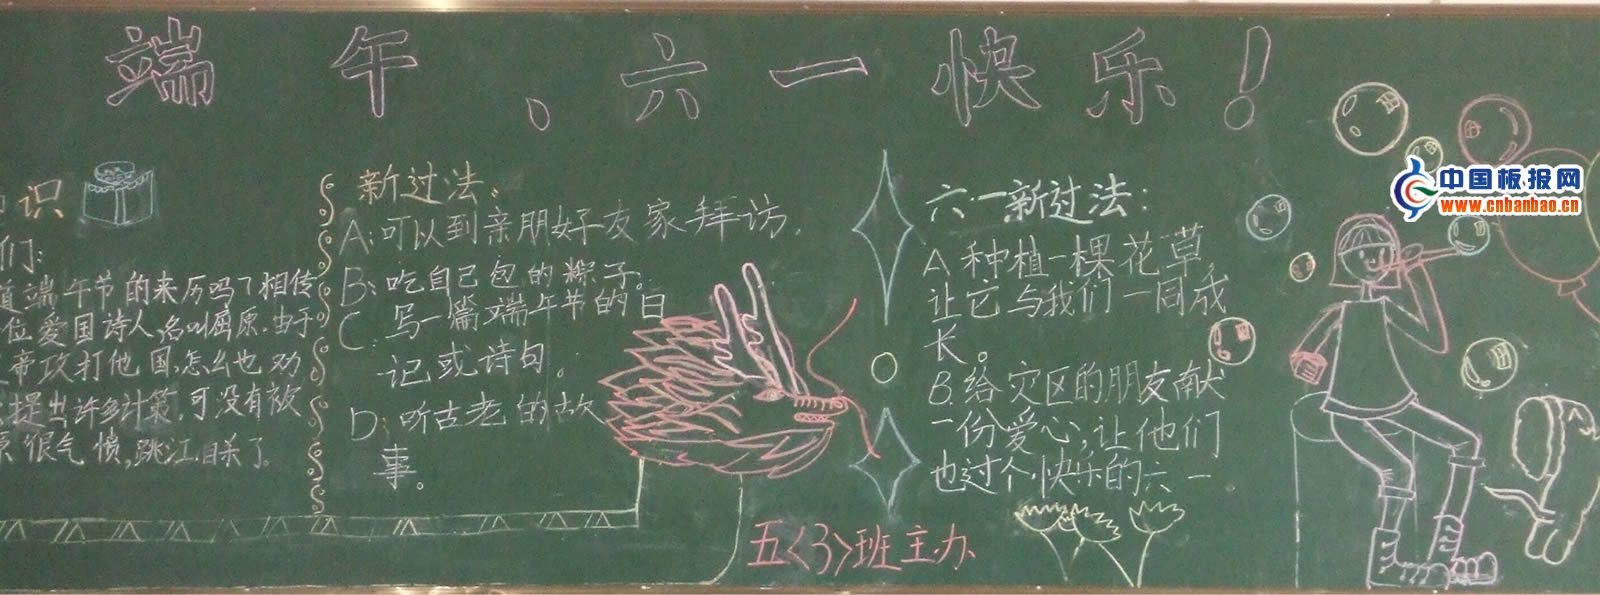 端午、六一快乐！
识
们:
道端午节的来历吗？相传
位爱国诗人,名叫屈原.由于
帝攻打他国,怎么也劝
提出许多计策,可没有被
很气愤,跳江自杀了.
新过法:
A:可以到亲朋好友家拜访.
B:吃自己包的粽子。
C:写一篇端午节的日
记或诗句。
D:听古老的故
事。
六一新过法:
A.种植一棵花草,
让它与我们一同成
长。
B.给灾区的朋友献
一份爱心,让他们
也过个快乐的六一
五<3>班主办
中国板报网
www.cnbanbao.cn